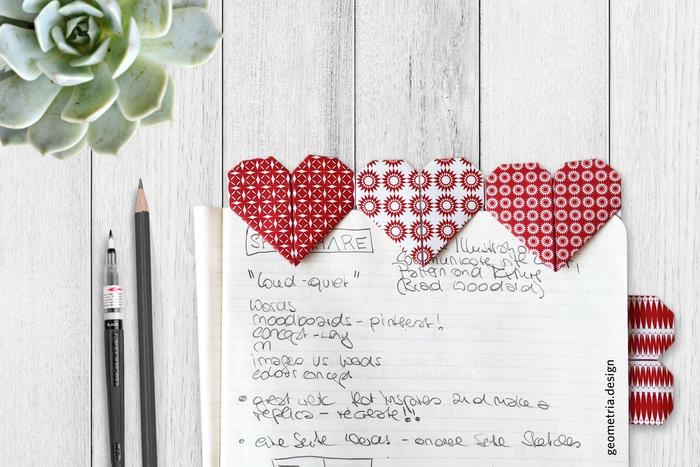 SKILLSHARE
Illustration
Communicate with
Pattern and Texture !
(Brad Woodard)
"loud-quiet"
Words
moodboards - pinterest!
concept - why
m
images vs words
colour concept
• great work that inspires and make a
replica - recreate!!!
• eine Seite Words - andere Seite Sketches
BLACK
geometria.design